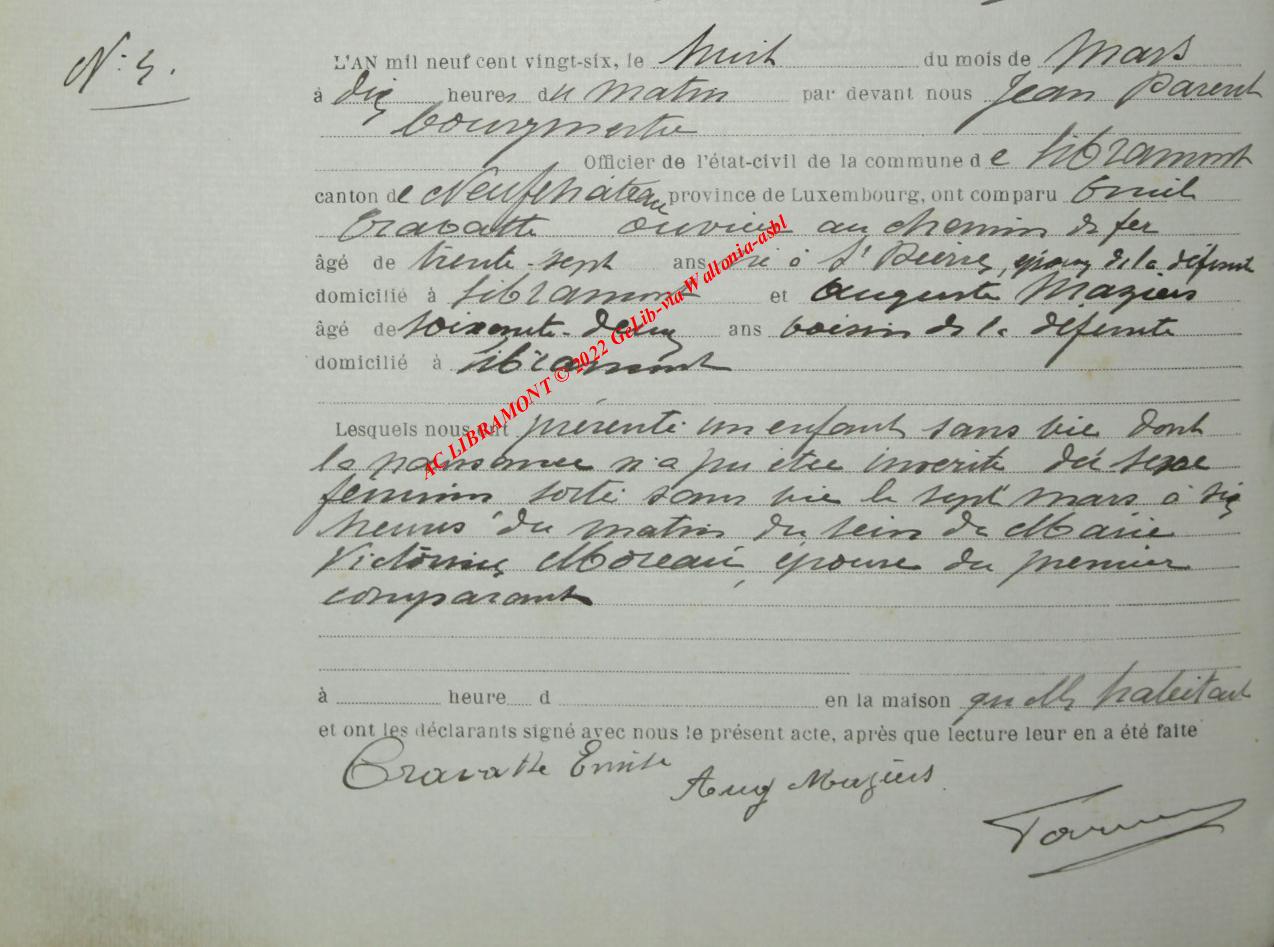 N: 5.
L'AN mil neuf cent vingt-six, le huit du mois de Mars
à dix heures du matin par devant nous Jean Parent
bourgmestre
Officier de l'état-civil de la commune de Libramont
canton de Neufchâteau province de Luxembourg, ont comparu Emile
Cravatte ouvrier au chemin de fer
âgé de trente-sept ans né à St Pierre, époux de la défunte
domicilié à Libramont et Auguste Maziers
âgé de soixante-deux ans voisin de la défunte
domicilié à Libramont
Lesquels nous ont présenté un enfant sans vie dont
la naissance n'a pu être inscrite du sexe
féminin sorti sans vie le sept mars à six
heures du matin du sein de Marie
Victorine Moreau, épouse du premier
comparant
à heure d en la maison qu'elle habitait
et ont les déclarants signé avec nous le présent acte, après que lecture leur en a été faite
Cravatte Emile
Aug Maziers
AC LIBRAMONT © 2022 GeLib-via Wallonia-asbl